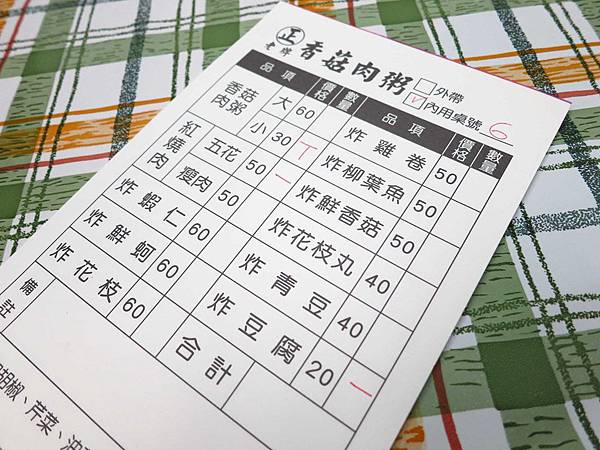 正 香菇肉粥
外帶
V 內用桌號 6
品項 價格 數量 品項 價格 數量
香菇肉粥 大 60
小 30 丅
紅燒肉 五花 50 一
瘦肉 50
炸蝦仁 60
炸鮮蚵 60
炸花枝 60
炸雞卷 50
炸柳葉魚 50
炸鮮香菇 50
炸花枝丸 40
炸青豆 40
炸豆腐 20 一
合計
備註
胡椒、芹菜、油